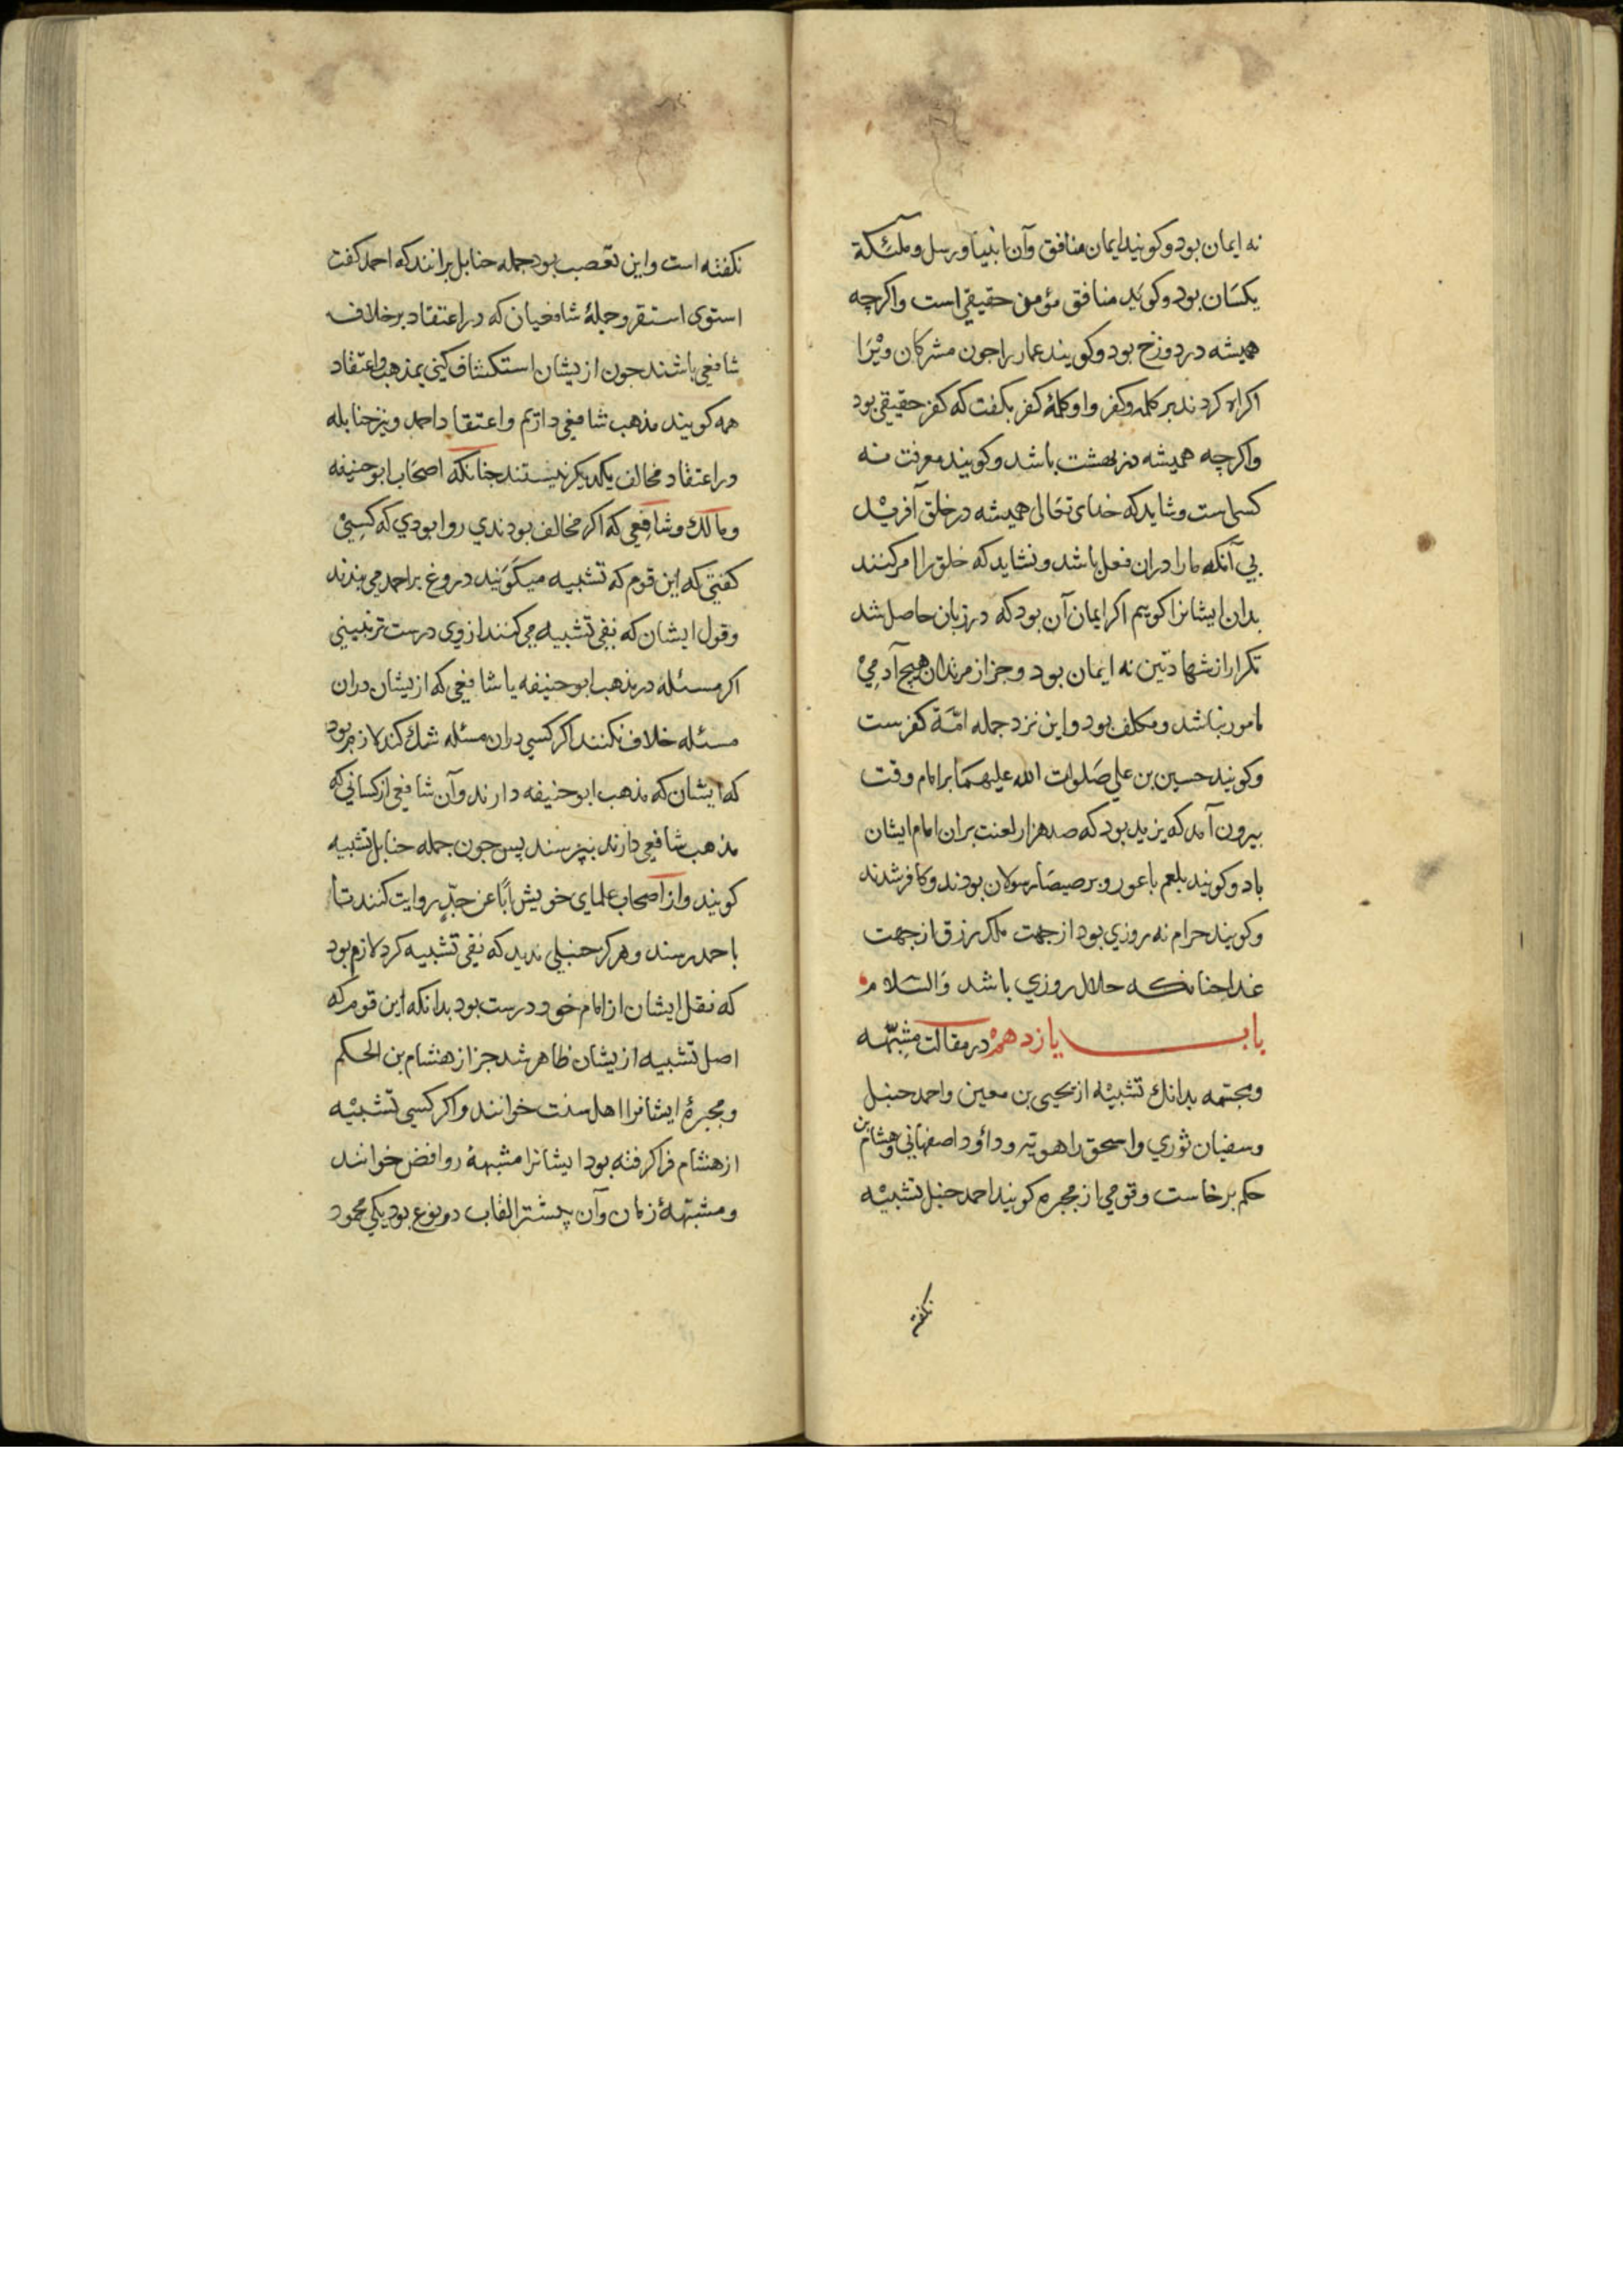 نه ایمان بود و کویند ایمان منافق وآن انبیا و رسل و ملئکة
یکسان بود و کویند منافق مؤمن حقیقی است واکرچه
همیشه در دوزخ بود و کویند عمار را جون مشرکان ویرا
اکراه کردند بر کلمه وکفر واو کلمۀ کفر بکفت که کفر حقیقی بود
واکرچه همیشه در بهشت باشد و کویند معرفت نه
کسبی است و شاید که خدای تعالی همیشه در خلق آفریند
بی آنکه ما را دران فعل باشد و نشاید که خلق را امر کنند
بدان ایشانرا کویم اکر ایمان آن بود که در زبان حاصل شد
تکرار از شهادتین نه ایمان بود و جز از مرتدان هیچ آدمی
مامور نباشد و مکلف بود و این نزد جمله امّة کفرست
و کویند حسین بن علی صلوات الله علیهما بر امام وقت
بیرون آمد که یزید بود که صد هزار لعنت بران امام ایشان
باد و کویند بلعم باعور و برصیصا رسولان بودند و کافر شدند
و کویند حرام نه روزی بود از جهت ملک رزق از جهت
غدا جنانکه حلال روزی باشد والسلام
باب یازدهم در مقالت مشبّهه
ومجسّمه بدانك تشبیه از یحیی بن معین واحمد حنبل
وسفیان ثوری واسحق راهویه وداؤد اصفهانی وهشام بن
حکم برخاست و قومی از مجبره کویند احمد حنبل تشبیه
نکفته
نکفته است واین تعصب بود جمله حنابل برانند که احمد کفت
استوی استقر وجملۀ شافعیان که در اعتقاد بر خلاف
شافعی باشند جون ازیشان استکشاف کنی بمذهب واعتقاد
همه کویند مذهب شافعی داریم واعتقاد احمد ونیز حنابله
در اعتقاد مخالف یکدیکر نیستند جنانکه اصحاب ابو حنیفه
ومالك وشافعی که اکر مخالف بودندی روا بودی که کسی
کفتی که این قوم که تشبیه میکویند دروغ بر احمد می بندند
وقول ایشان که نفی تشبیه می کنند از وی درست تر نبینی
اکر مسئله در مذهب ابو حنیفه یا شافعی که ازیشان دران
مسئله خلاف نکنند اکر کسی دران مسئله شك کند لازم بود
که ایشان که مذهب ابو حنیفه دارند وآن شافعی از کسانی که
مذهب شافعی دارند بپرسند پس جون جمله حنابل تشبیه
کویند واز اصحاب علمای خویش اباً عن جدٍّ روایت کنند تا
با حمد رسند وهرکز حنبلی ندید که نفی تشبیه کرد لازم بود
که نقل ایشان از امام خود درست بود بدانکه این قوم که
اصل تشبیه ازیشان ظاهر شد جز از هشام بن الحکم
ومجبرۀ ایشانرا اهل سنت خوانند واکر کسی تشبیه
از هشام فرا کرفته بود ایشانرا مشبهۀ روافض خوانند
ومشبّهۀ زمان وآن بیشتر القاب دو نوع بود یکی محمود